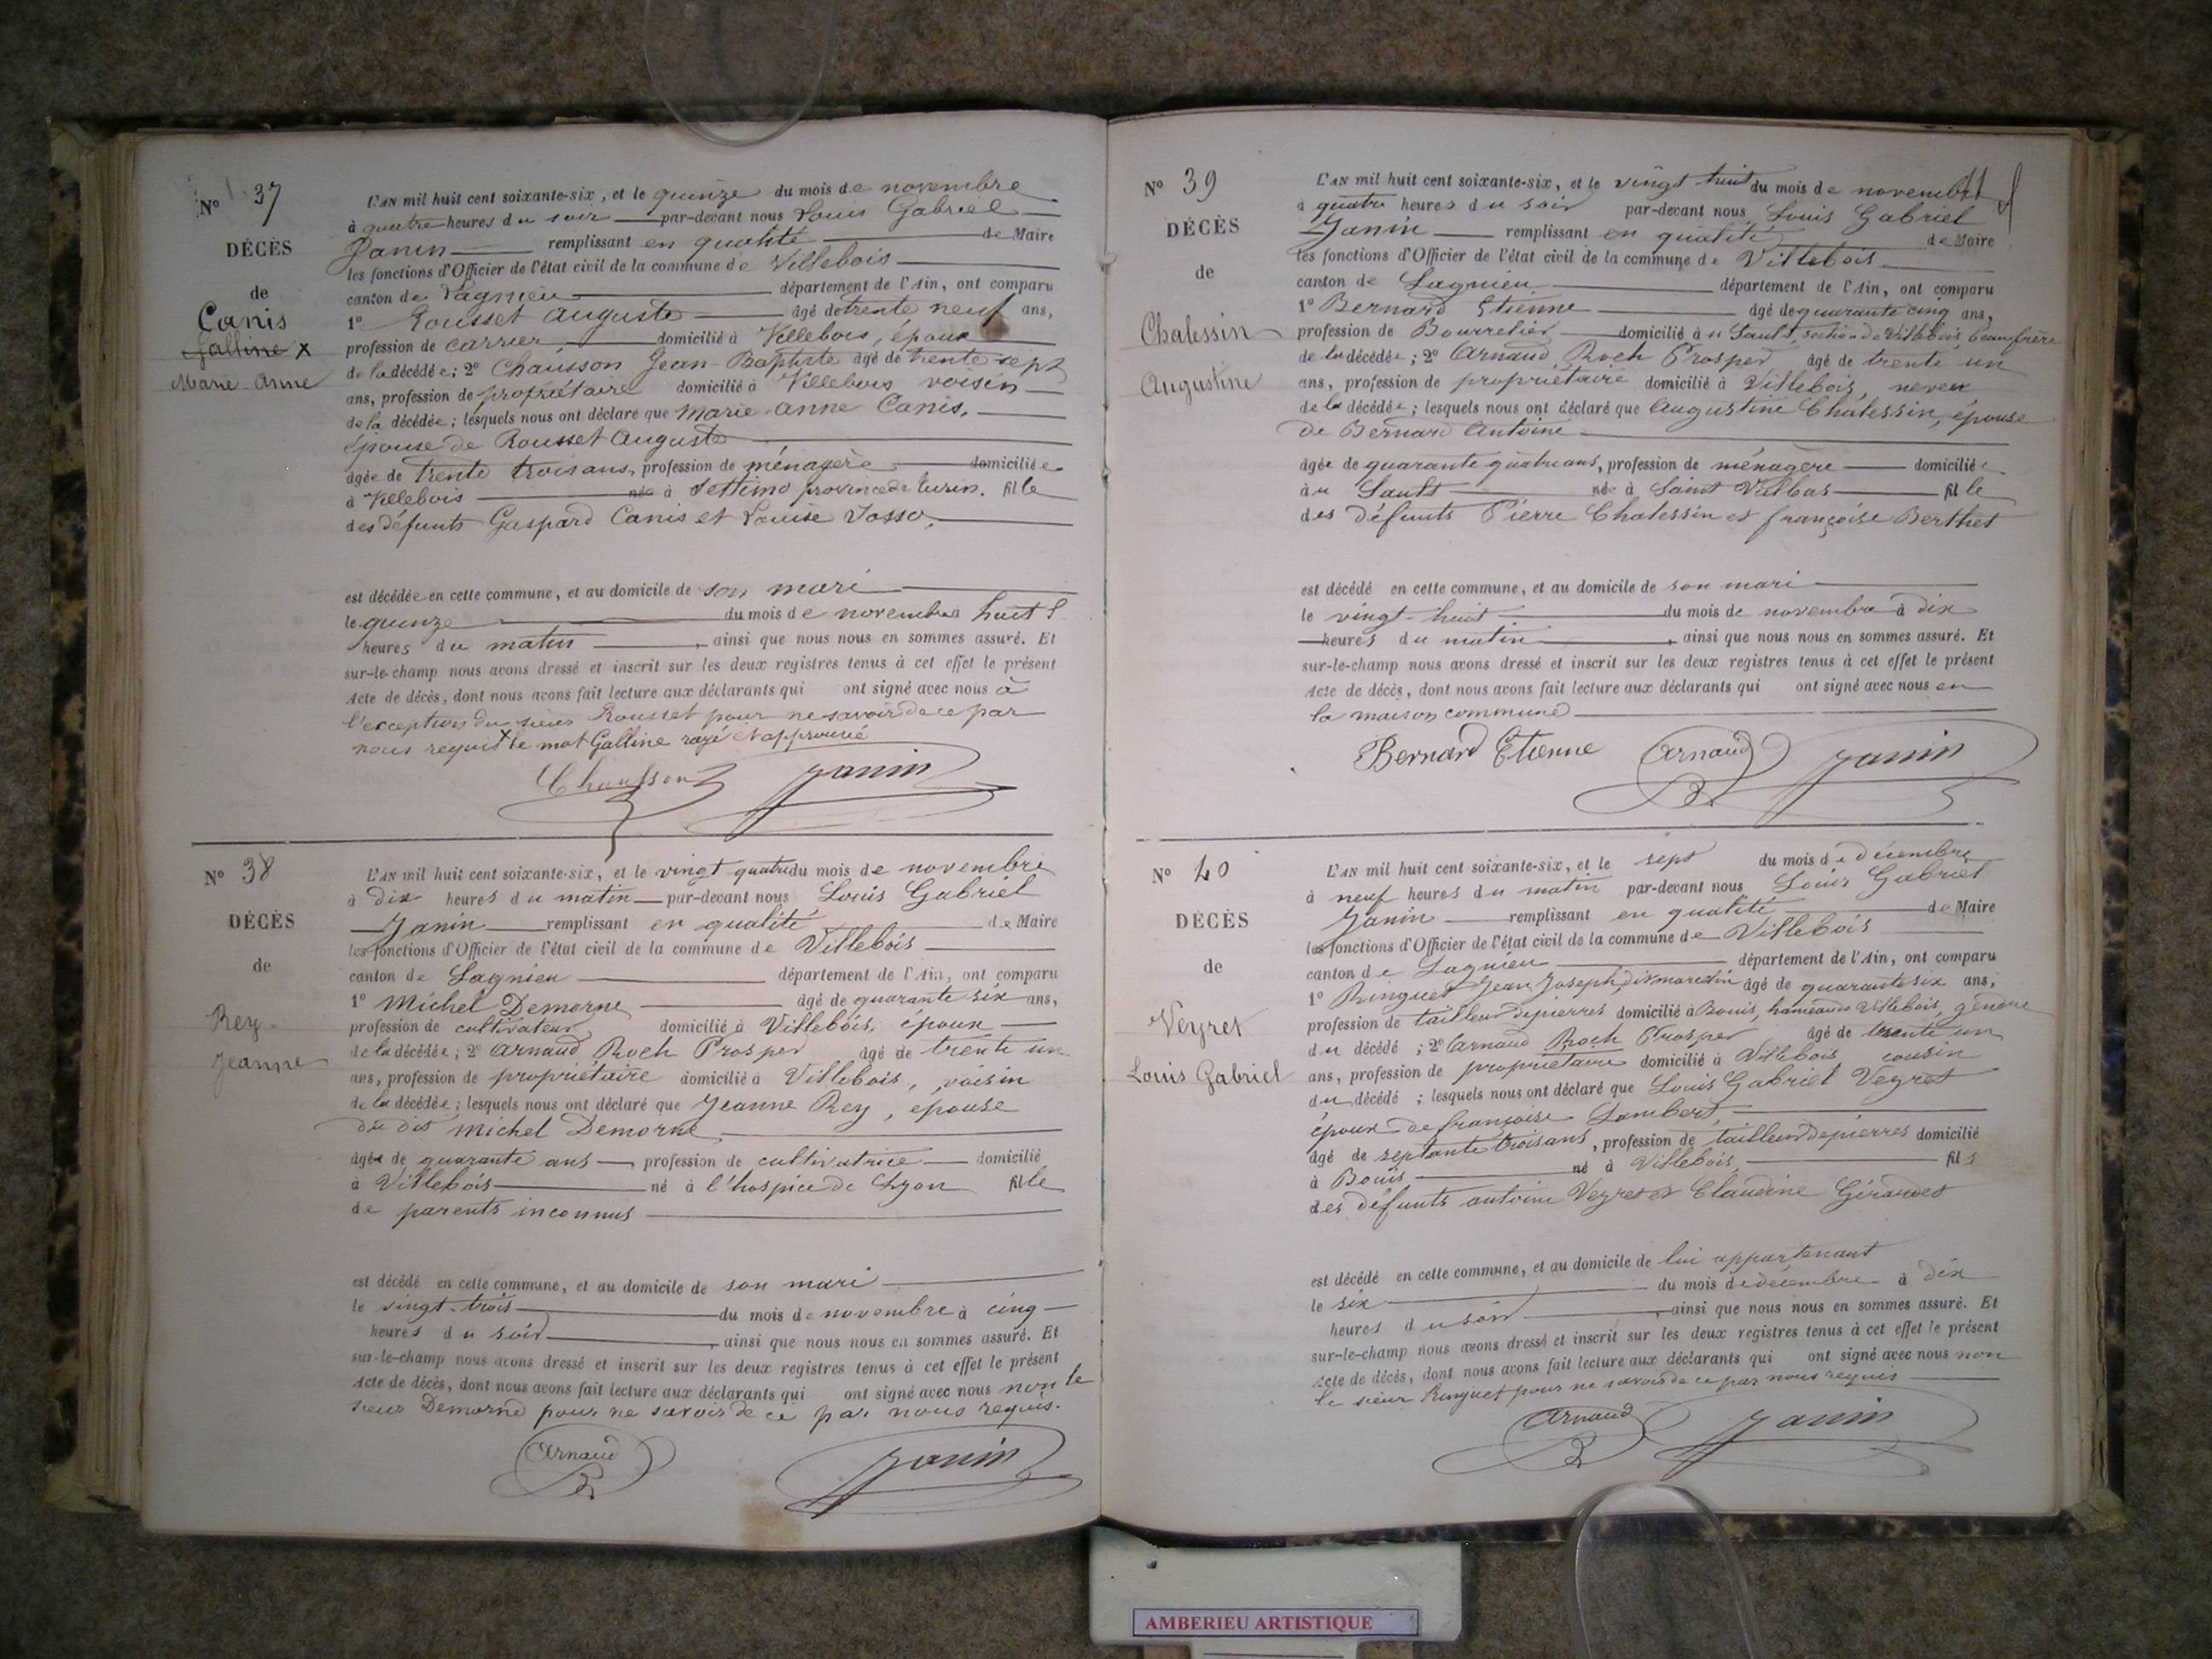 N° 37
DÉCÈS
de
Canis
Galline x
Marie-Anne
L'AN mil huit cent soixante-six, et le quinze du mois de novembre
à quatre heures du soir par-devant nous Louis Gabriel
Janin remplissant en qualité de Maire
les fonctions d'Officier de l'état civil de la commune de Villebois
canton de Lagnieu département de l'Ain, ont comparu
1° Rousset Auguste âgé de trente neuf ans,
profession de carrier domicilié à Villebois, époux
de la décédée; 2° Chausson Jean-Baptiste âgé de trente sept
ans, profession de propriétaire domicilié à Villebois voisin
de la décédée; lesquels nous ont déclaré que Marie Anne Canis,
épouse de Rousset Auguste
âgée de trente trois ans, profession de ménagère domiciliée
à Villebois née à Settimo province de turin. fille
des défunts Gaspard Canis et Louise Josso,
est décédée en cette commune, et au domicile de son mari
le quinze du mois de novembre à huit
heures du matin, ainsi que nous nous en sommes assuré. Et
sur-le-champ nous avons dressé et inscrit sur les deux registres tenus à cet effet le présent
Acte de décès, dont nous avons fait lecture aux déclarants qui ont signé avec nous à
l'exception du sieur Rousset pour ne savoir de ce par
nous requis x le mot Galline rayé et approuvé
Chausson Janin
N° 38
DÉCÈS
de
Rey
Jeanne
L'AN mil huit cent soixante-six, et le vingt quatre du mois de novembre
à dix heures du matin par-devant nous Louis Gabriel
Janin remplissant en qualité de Maire
les fonctions d'Officier de l'état civil de la commune de Villebois
canton de Lagnieu département de l'Ain, ont comparu
1° Michel Demorne âgé de quarante six ans,
profession de cultivateur domicilié à Villebois, époux
de la décédée; 2° Arnaud Roch Prosper âgé de trente un
ans, profession de propriétaire domicilié à Villebois, voisin
de la décédée; lesquels nous ont déclaré que Jeanne Rey, épouse
du dit Michel Demorne
âgée de quarante ans, profession de cultivatrice domicilié
à Villebois né à l'hospice de Lyon fille
de parents inconnus
est décédé en cette commune, et au domicile de son mari
le vingt-trois du mois de novembre à cinq
heures du soir, ainsi que nous nous en sommes assuré. Et
sur-le-champ nous avons dressé et inscrit sur les deux registres tenus à cet effet le présent
Acte de décès, dont nous avons fait lecture aux déclarants qui ont signé avec nous non le
sieur Demorne pour ne savoir de ce par nous requis.
Arnaud R Janin
N° 39
DÉCÈS
de
Chalessin
Augustine
L'AN mil huit cent soixante-six, et le vingt huit du mois de novembre
à quatre heures du soir par-devant nous Louis Gabriel
Janin remplissant en qualité de Maire
les fonctions d'Officier de l'état civil de la commune de Villebois
canton de Lagnieu département de l'Ain, ont comparu
1° Bernard Etienne âgé de quarante cinq ans,
profession de Bourrelier domicilié au Sault, section de Villebois, beau frère
de la décédée; 2° Arnaud Roch Prosper âgé de trente un
ans, profession de propriétaire domicilié à Villebois, neveu
de la décédée; lesquels nous ont déclaré que Augustine Chalessin, épouse
de Bernard Antoine
âgée de quarante quatre ans, profession de ménagère domiciliée
au Sault née à Saint Vulbas fille
des défunts Pierre Chalessin et françoise Berthet
est décédé en cette commune, et au domicile de son mari
le vingt-huit du mois de novembre à dix
heures du matin, ainsi que nous nous en sommes assuré. Et
sur-le-champ nous avons dressé et inscrit sur les deux registres tenus à cet effet le présent
Acte de décès, dont nous avons fait lecture aux déclarants qui ont signé avec nous en
la maison commune
Bernard Etienne Arnaud R Janin
N° 40
DÉCÈS
de
Veyret
Louis Gabriel
L'AN mil huit cent soixante-six, et le sept du mois de décembre
à neuf heures du matin par-devant nous Louis Gabriel
Janin remplissant en qualité de Maire
les fonctions d'Officier de l'état civil de la commune de Villebois
canton de Lagnieu département de l'Ain, ont comparu
1° Ringuet Jean Joseph, dit marcelin âgé de quarante six ans,
profession de tailleur de pierres domicilié à Bouis, hameau de Villebois, gendre
du décédé; 2° Arnaud Roch Prosper âgé de trente un
ans, profession de propriétaire domicilié à Villebois, cousin
du décédé; lesquels nous ont déclaré que Louis Gabriel Veyret
époux de françoise Lambert,
âgé de septante trois ans, profession de tailleur de pierres domicilié
à Bouis né à Villebois, fils
des défunts antoine Veyret et Claudine Girardet
est décédé en cette commune, et au domicile de lui appartenant
le six du mois de décembre à dix
heures du soir, ainsi que nous nous en sommes assuré. Et
sur-le-champ nous avons dressé et inscrit sur les deux registres tenus à cet effet le présent
Acte de décès, dont nous avons fait lecture aux déclarants qui ont signé avec nous non
le sieur Ringuet pour ne savoir de ce par nous requis
Arnaud R Janin
AMBERIEU ARTISTIQUE